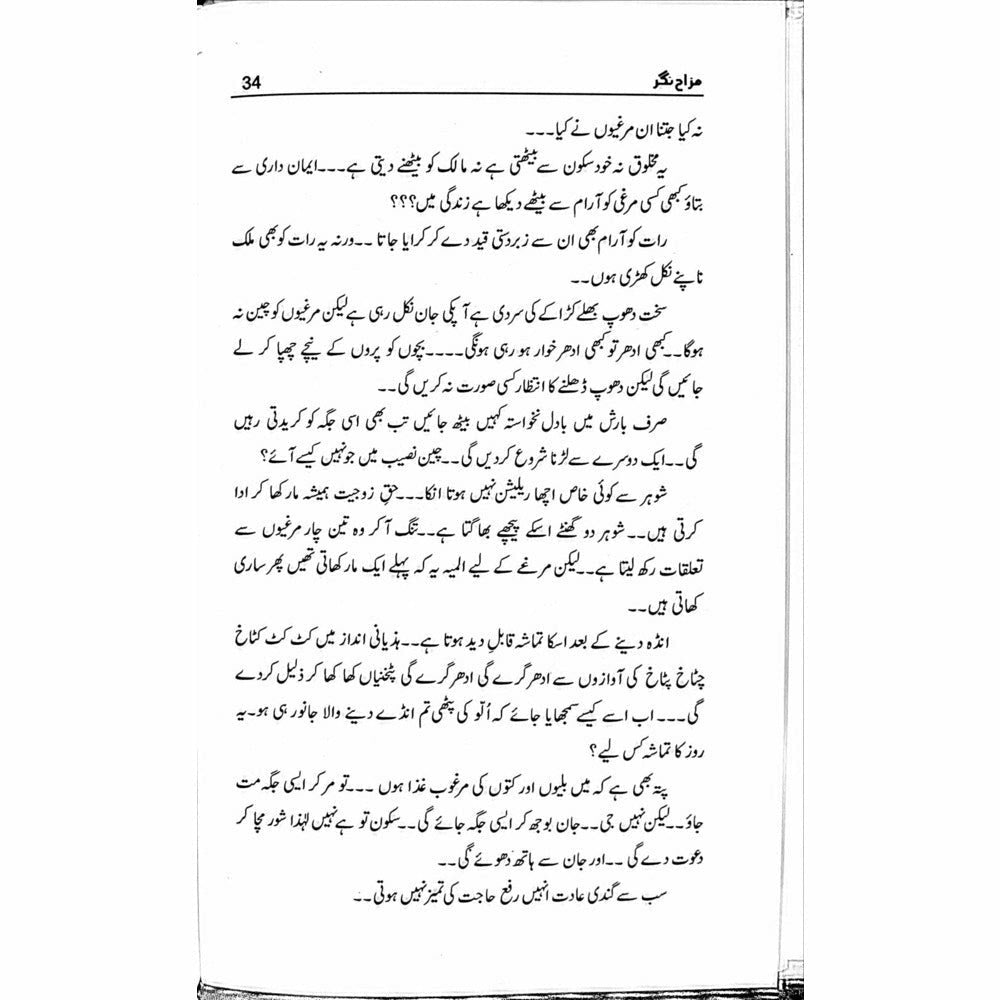 مزاح نگر
34
نہ کیا جتنا ان مرغیوں نے کیا۔۔۔
یہ مخلوق نہ خود سکون سے بیٹھتی ہے نہ مالک کو بیٹھنے دیتی ہے۔۔۔ایمان داری سے
بتاؤ کبھی کسی مرغی کو آرام سے بیٹھے دیکھا ہے زندگی میں؟؟؟
رات کو آرام بھی ان سے زبردستی قید دے کر کرایا جاتا ۔۔ورنہ یہ رات کو بھی ملک
ناپنے نکل کھڑی ہوں۔۔
سخت دھوپ بھلے کڑاکے کی سردی ہے آپکی جان نکل رہی ہے لیکن مرغیوں کو چین نہ
ہوگا۔۔کبھی ادھر تو کبھی ادھر خوار ہو رہی ہونگی۔۔۔۔بچوں کو پروں کے نیچے چھپا کر لے
جائیں گی لیکن دھوپ ڈھلنے کا انتظار کسی صورت نہ کریں گی۔۔
صرف بارش میں بادل نخواستہ کہیں بیٹھ جائیں تب بھی اسی جگہ کو کریدتی رہیں
گی۔۔ایک دوسرے سے لڑنا شروع کردیں گی۔۔چین نصیب میں جو نہیں کیسے آئے؟
شوہر سے کوئی خاص اچھا ریلیشن نہیں ہوتا انکا۔۔۔حقِ زوجیت ہمیشہ مار کھا کر ادا
کرتی ہیں۔۔شوہر دو گھنٹے اسکے پیچھے بھاگتا ہے۔۔تنگ آ کر وہ تین چار مرغیوں سے
تعلقات رکھ لیتا ہے۔۔لیکن مرغے کے لیے المیہ یہ کہ پہلے ایک مار کھاتی تھیں پھر ساری
کھاتی ہیں۔۔
انڈہ دینے کے بعد اسکا تماشہ قابلِ دید ہوتا ہے۔۔ہذیانی انداز میں کٹ کٹ کٹاخ
چٹاخ پٹاخ کی آوازوں سے ادھر گرے گی ادھر گرے گی پٹخنیاں کھا کھا کر ذلیل کردے
گی۔۔۔اب اسے کیسے سمجھایا جائے کہ اُلّو کی پٹھی تم انڈے دینے والا جانور ہی ہو۔یہ
روز کا تماشہ کس لیے؟
پتہ بھی ہے کہ میں بلیوں اور کتوں کی مرغوب غذا ہوں ۔۔۔تو مر کر ایسی جگہ مت
جاؤ۔۔لیکن نہیں جی۔۔جان بوجھ کر ایسی جگہ جائے گی۔۔سکون تو ہے نہیں لہٰذا شور مچا کر
دعوت دے گی ۔۔اور جان سے ہاتھ دھوئے گی۔۔
سب سے گندی عادت انہیں رفع حاجت کی تمیز نہیں ہوتی۔۔